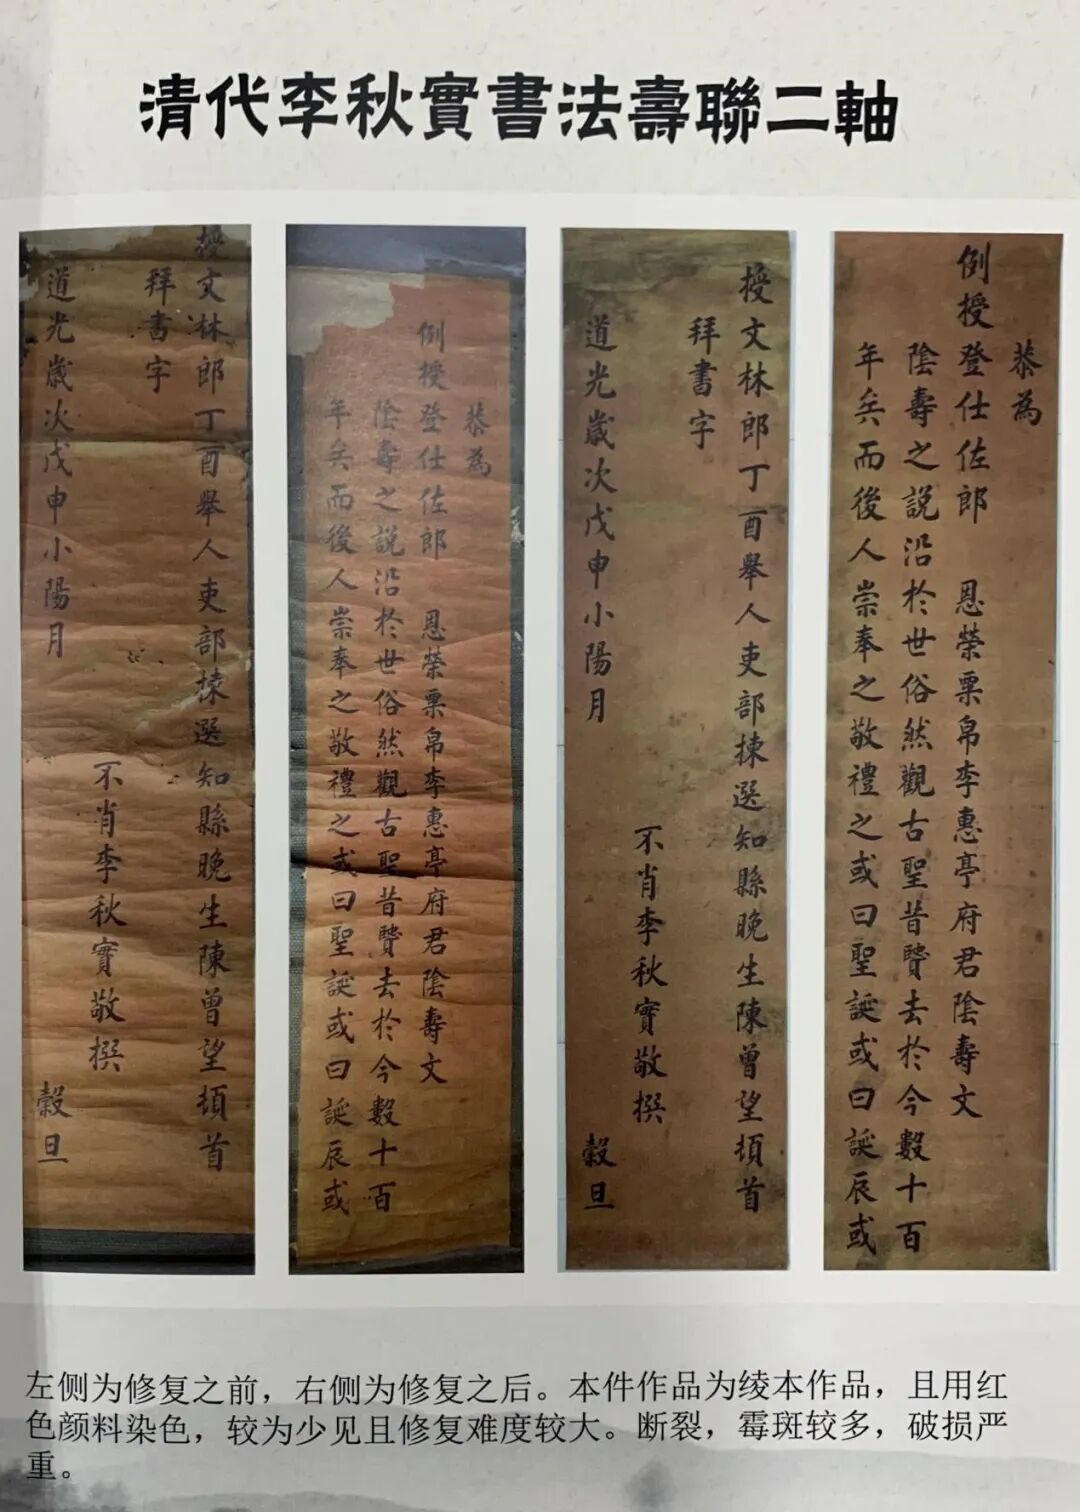 清代李秋實書法壽聯二軸
授文林郎丁酉舉人吏部揀選知縣晚生陳曾望頓首
拜書字
不肖李秋實敬撰
道光歲次戊申小陽月 穀旦
恭為
例授登仕佐郎 恩榮粟帛李惠亭府君陰壽文
陰壽之說沿於世俗然觀古聖昔賢去於今數十百
年矣而後人崇奉之敬禮之或曰聖誕或曰誕辰或
授文林郎丁酉舉人吏部揀選知縣晚生陳曾望頓首
拜書字
不肖李秋實敬撰
道光歲次戊申小陽月 穀旦
恭為
例授登仕佐郎 恩榮粟帛李惠亭府君陰壽文
陰壽之說沿於世俗然觀古聖昔賢去於今數十百
年矣而後人崇奉之敬禮之或曰聖誕或曰誕辰或
左侧为修复之前，右侧为修复之后。本件作品为绫本作品，且用红
色颜料染色，较为少见且修复难度较大。断裂，霉斑较多，破损严
重。